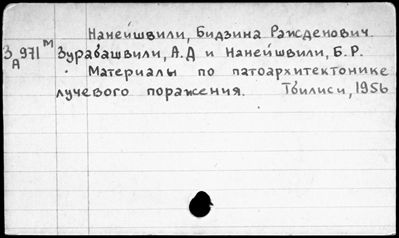 Нанейшвили, Бидзина Ражденович.
З 971 м Зурабашвили, А.Д и Нанейшвили, Б.Р.
А Материалы по патоархитектонике
лучевого поражения. Тбилиси, 1956